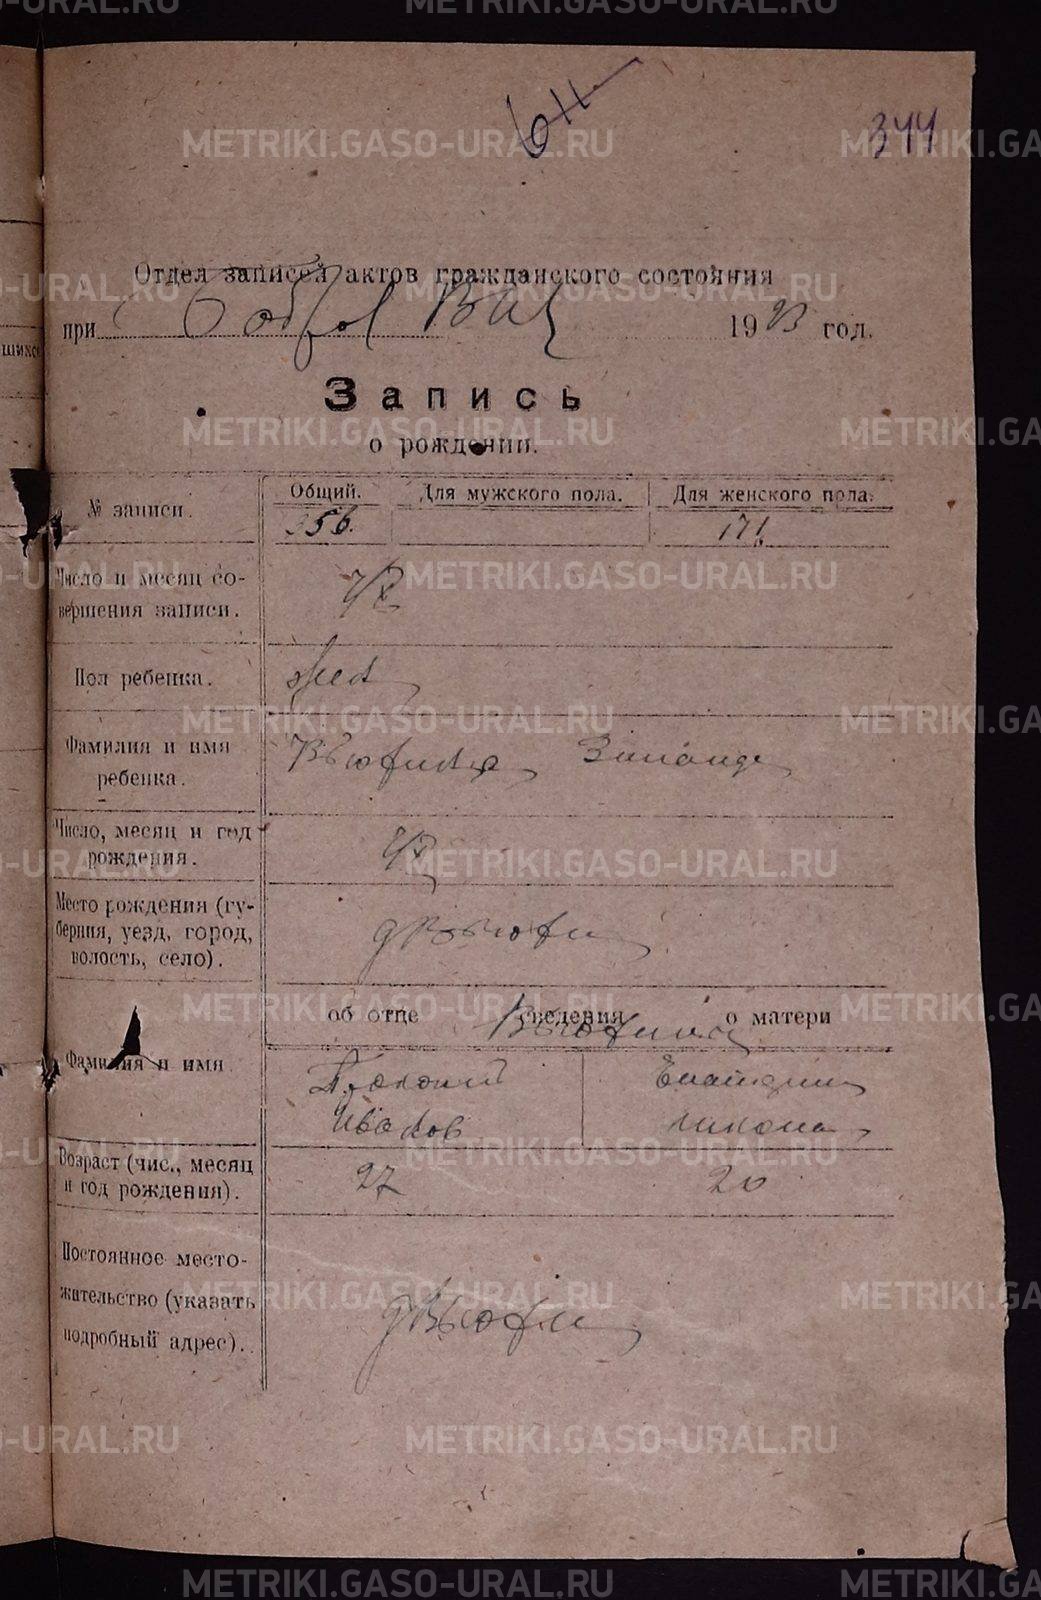 METRIKI.GASO-URAL.RU
611
344
Отдел записей актов гражданского состояния
при Бобров ВИК 1923 год.
Запись
о рождении.
№ записи.
Общий. Для мужского пола. Для женского пола.
356. 171
Число и месяц со-
вершения записи.
Пол ребенка. жен
Фамилия и имя
ребенка.
Вьюхина Зинаида
Число, месяц и год
рождения.
Место рождения (гу-
берния, уезд, город,
волость, село).
д Вьюхи
об отце сведения о матери
Вьюхины
Фамилия и имя
Прокопий
Иванов
Возраст (чис., месяц
и год рождения).
27 20
Постоянное место-
жительство (указать
подробный адрес).
д Вьюхи